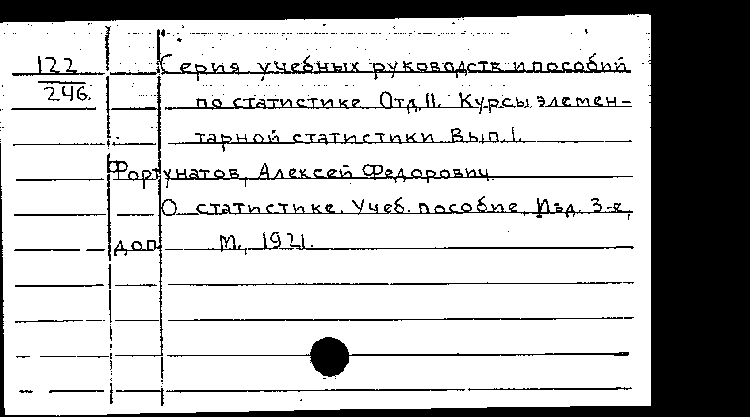 122
246.
Серия учебных руководств и пособий
по статистике. Отд. II. Курсы элемен-
тарной статистики. Вып. I.
Фортунатов, Алексей Федорович
О статистике. Учеб. пособие. Изд. 3-е,
доп. М., 1921.